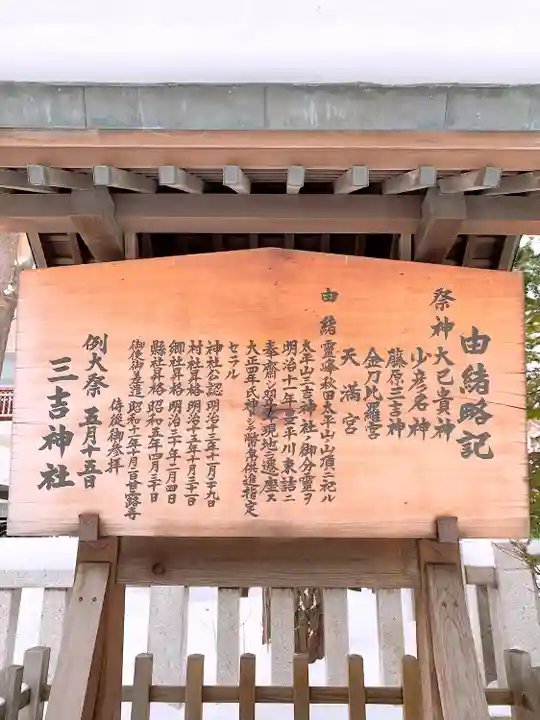 由緒略記
祭神 大己貴神
少彦名神
藤原三吉神
金刀比羅宮
天満宮
由緒 靈峯秋田太平山山頂ニ祀ル
太平山三吉神社ノ御分靈ヲ
明治十一年豊平川東詰ニ
奉齋シ翌年現地ニ遷座ス
大正四年氏神シ幣帛供進指定
セラル
神社公認 明治十三年十一月十九日
村社昇格 明治十五年十月三十一日
郷社昇格 明治三十年二月四日
縣社昇格 昭和五年四月三十日
御使御差遣 昭和十一年十月二日甘露寺
侍従御参拝
例大祭 五月十五日
三吉神社